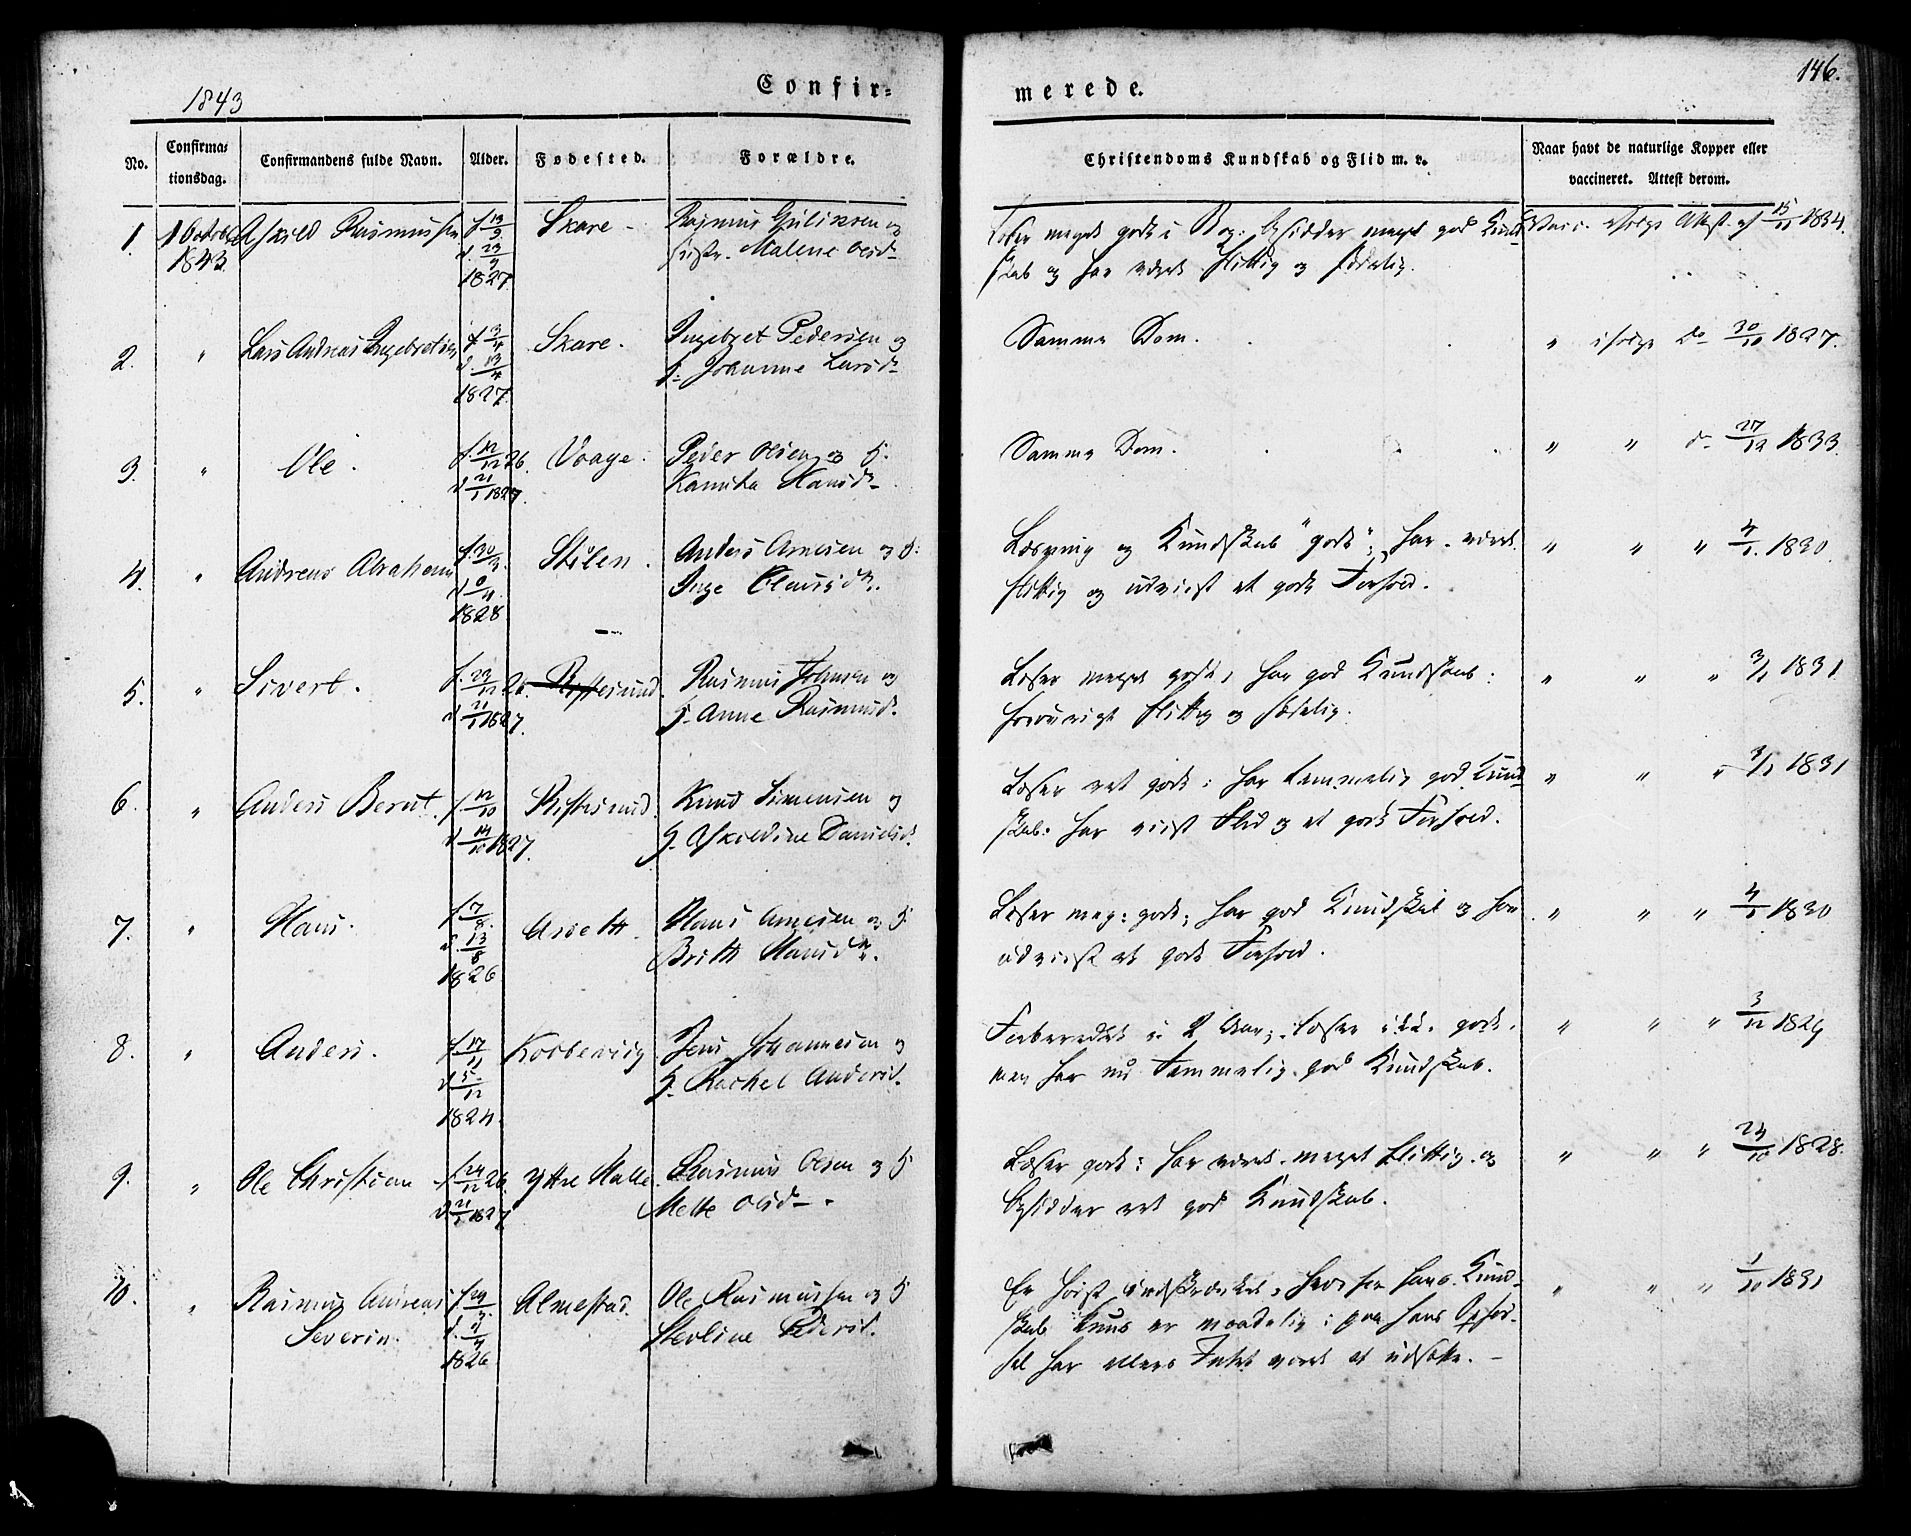 146.
1843
Confir=
merede.
No.
Confirma=
tionsdag.
Confirmandens fulde Navn.
Alder.
Fødested.
Forældre.
Christendoms Kundskab og Flid m. v.
Naar havt de naturlige Kopper eller
vaccineret. Attest derom.
1.
1 October
1843.
Askild Rasmussen
f. 13/9
d. 23/9
1827
Skare
Rasmus
Malene Olsd.
Læser meget godt i Bog: besidder meget god Kund-
skab og har været flittig og sædelig.
Vacc. ifølge Attest af 15/11 1834.
2.
"
Lars Andreas Ingebretsen
f. 3/4
d. 13/4
1827
Skare.
Ingebret Pedersen og
H: Johanne Larsd.
Samme Dom.
" ifølge do 30/10 1827.
3.
"
Ole.
f. 12/12 26.
d. 21/1 1827.
Vaage.
Peder Olsen og H.
Hansd.
Samme Dom.
" " do 27/12 1833.
4.
"
Andreas Abraham
f. 30/3.
d. /4.
1828
Anders Arnesen og H:
Inge Clausd.
Læsning og Kundskab "godt"; har været
flittig og udviist et godt Forhold.
" " " 4/1. 1830.
5.
"
Sivert.
f. 23/12 26.
d. 21/1 1827.
Rasmus Johnsen og
H. Anne Rasmusd.
Læser meget godt, har god Kundskab:
forøvrigt flittig og sædelig.
" " " 3/1 1831
6.
"
Anders Bernt.
f. 12/10
d. 14/10 1827.
Ristesund.
Knud Simensen og
H. Askildine Danielsd.
Læser ret godt; har temmelig god Kund-
skab: har viist Flid og et godt Forhold.
" " " 3/1 1831
7.
"
Hans.
f. 7/8.
d. 13/8
1826
Arseth.
Hans Arnesen og H.
Brith Hansd.
Læser meg: godt; har god Kundskab og har
udviist et godt Forhold.
" " " 4/1 1830
8.
"
Anders.
f. 17/11
d. 5/12
1824.
Korsevig
Jens Johannesen og
H. Rachel Andersd.
Forberedt i 2 Aar; læser godt,
men har nu temmelig god Kundskab.
" " " 3/12 1829
9.
"
Ole Christian
f. 24/12 26.
d. 21/1 1827
Yttre Halle.
Rasmus Olsen og H
Mette Olsd.
Læser godt: har været meget flittig og
besidder ret god Kundskab.
" " " 24/10 1828.
10.
"
Rasmus Andreas
Severin.
f. 24/3.
d. 2/4
1826
Almestad.
Ole Rasmussen og H
Stevline Pedersd.
Er høist indskrænket, hvorfor hans Kund-
skab kuns er maadelig; paa hans Opfør-
sel har ellers Intet været at udsætte.
" " " 1/10 1831